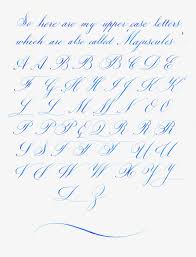 So here are my upper case letters
which are also called Majuscules
A A B B C C D D E E
F F G G H H I J K K
L L M M N N O O
P P P Q D R R R
S S S T T T U U U
V V W W X Y Y
Z Z